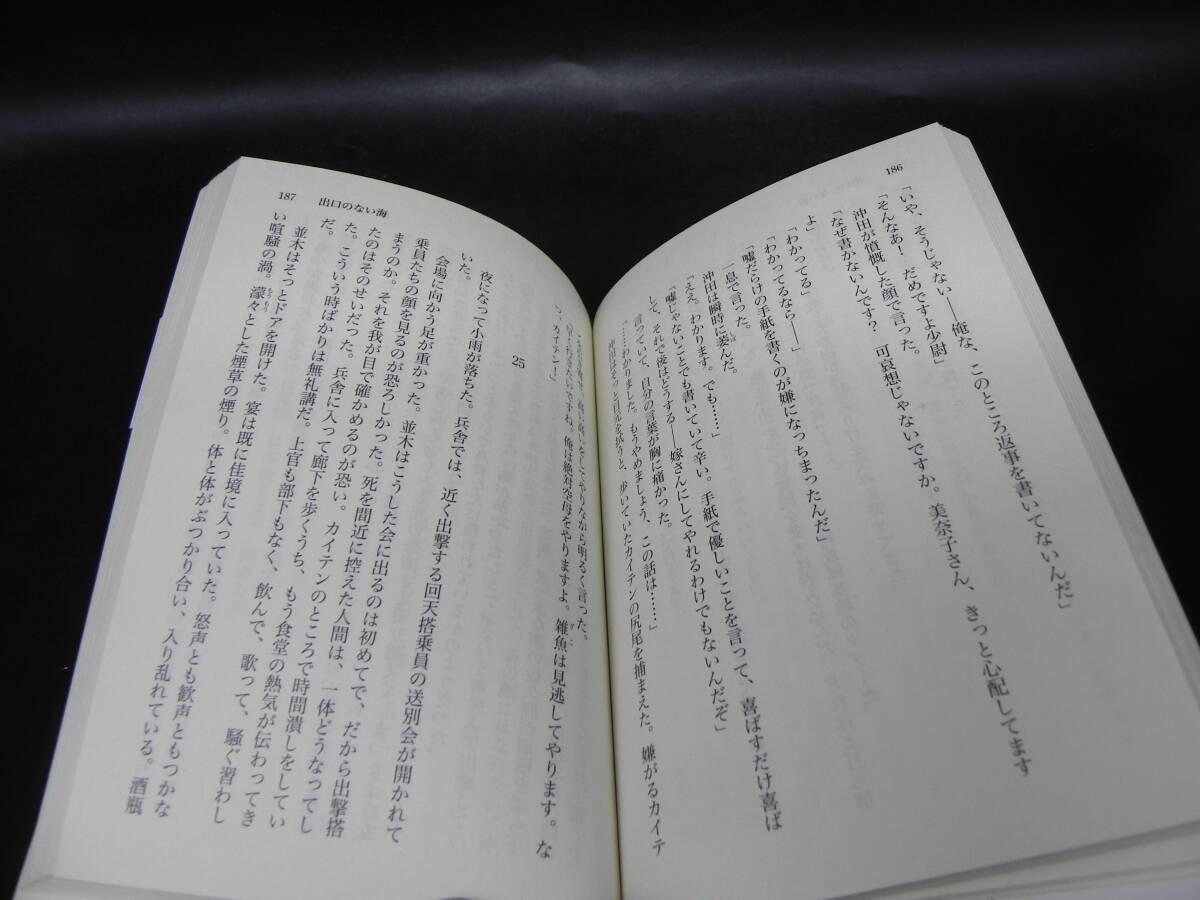 186
「いや、そうじゃない――俺な、このところ返事を書いてないんだ」
「そんなあ！　だめですよ少尉」
沖田が憤慨した顔で言った。
「なぜ書かないんです？　可哀想じゃないですか。美奈子さん、きっと心配してます
よ」
「わかってる」
「わかってるなら――」
「嘘だらけの手紙を書くのが嫌になっちまったんだ」
一息で言った。
沖田は瞬時に萎んだ。
「ええ、わかります。でも……」
「嘘じゃないことでも書いていて辛い。手紙で優しいことを言って、喜ばすだけ喜ば
して、それで後はどうする――嫁さんにしてやれるわけでもないんだぞ」
言っていて、自分の言葉が胸に痛かった。
「……わかりました。もうやめましょう、この話は……」
沖田はそっと目元を拭うと、歩いていたカイテンの尻尾を捕まえた。嫌がるカイテ
高い高いをしてやりながら明るく言った。
「早く行きたいですね。俺は絶対空母をやりますよ。雑魚は見逃してやります。な
っ、カイテン！」
25
夜になって小雨が落ちた。兵舎では、近く出撃する回天搭乗員の送別会が開かれて
いた。
会場に向かう足が重かった。並木はこうした会に出るのは初めてで、だから出撃搭
乗員たちの顔を見るのが恐ろしかった。死を間近に控えた人間は、一体どうなってし
まうのか。それを我が目で確かめるのが恐い。カイテンのところで時間潰しをしてい
たのはそのせいだった。兵舎に入って廊下を歩くうち、もう食堂の熱気が伝わってき
た。こういう時ばかりは無礼講だ。上官も部下もなく、飲んで、歌って、騒ぐ習わし
だ。
並木はそっとドアを開けた。宴は既に佳境に入っていた。怒声とも歓声ともつかな
い喧騒の渦。濛々とした煙草の煙り。体と体がぶつかり合い、入り乱れている。酒瓶
187　出口のない海